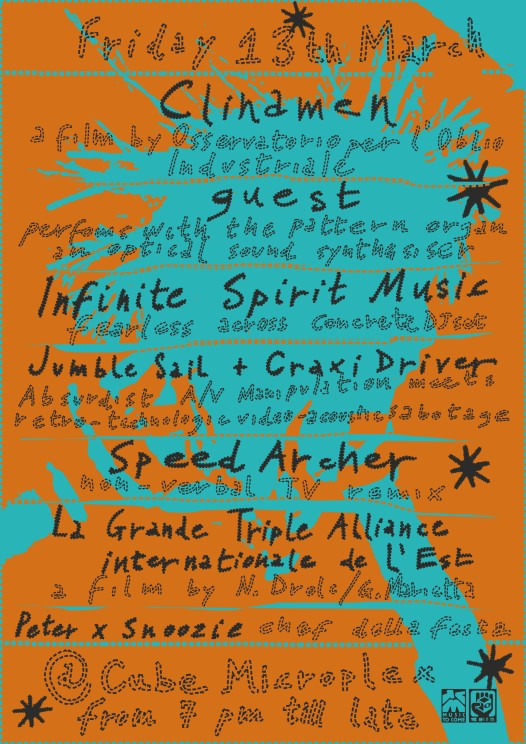 Friday 13th March
Clinamen
a film by Osservatorio per l'Oblio
Industriale
guest
performs with the pattern organ
an optical sound synthesiser
Infinite Spirit Music
fearless across concrete DJset
Jumble Sail + Craxi Driver
Absurdist A/V Manipulation meets
retro-technologic video-acoustic sabotage
Speed Archer
non-verbal TV remix
La Grande Triple Alliance
internationale de l'Est
a film by N. Drolc/G. Marietta
Peter x Snoozie chef della festa
@ Cube Microplex
from 7 pm till late
MUSIC
TO COME